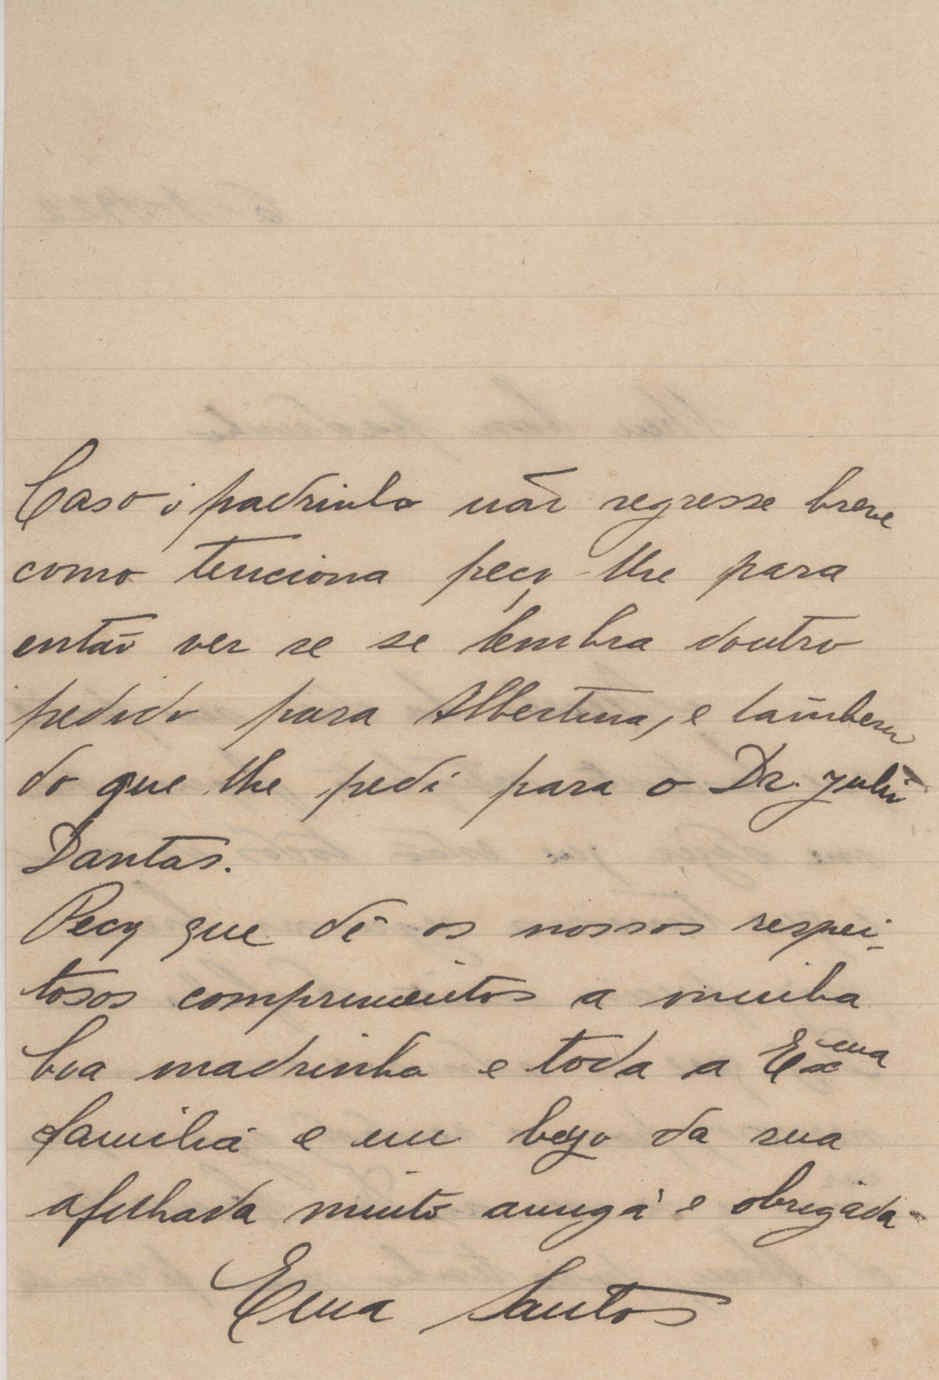 Caso o padrinho não regresse breve
como tenciona peço-lhe para
então ver se se lembra doutro
pedido para Albertina, e também
do que lhe pedi para o Dr. Julio
Dantas.
Peço que dê os nossos respei-
tosos comprimentos a minha
boa madrinha e toda a Exma
familia e um beijo da sua
afilhada muito amiga e obrigada-
Ema Santos